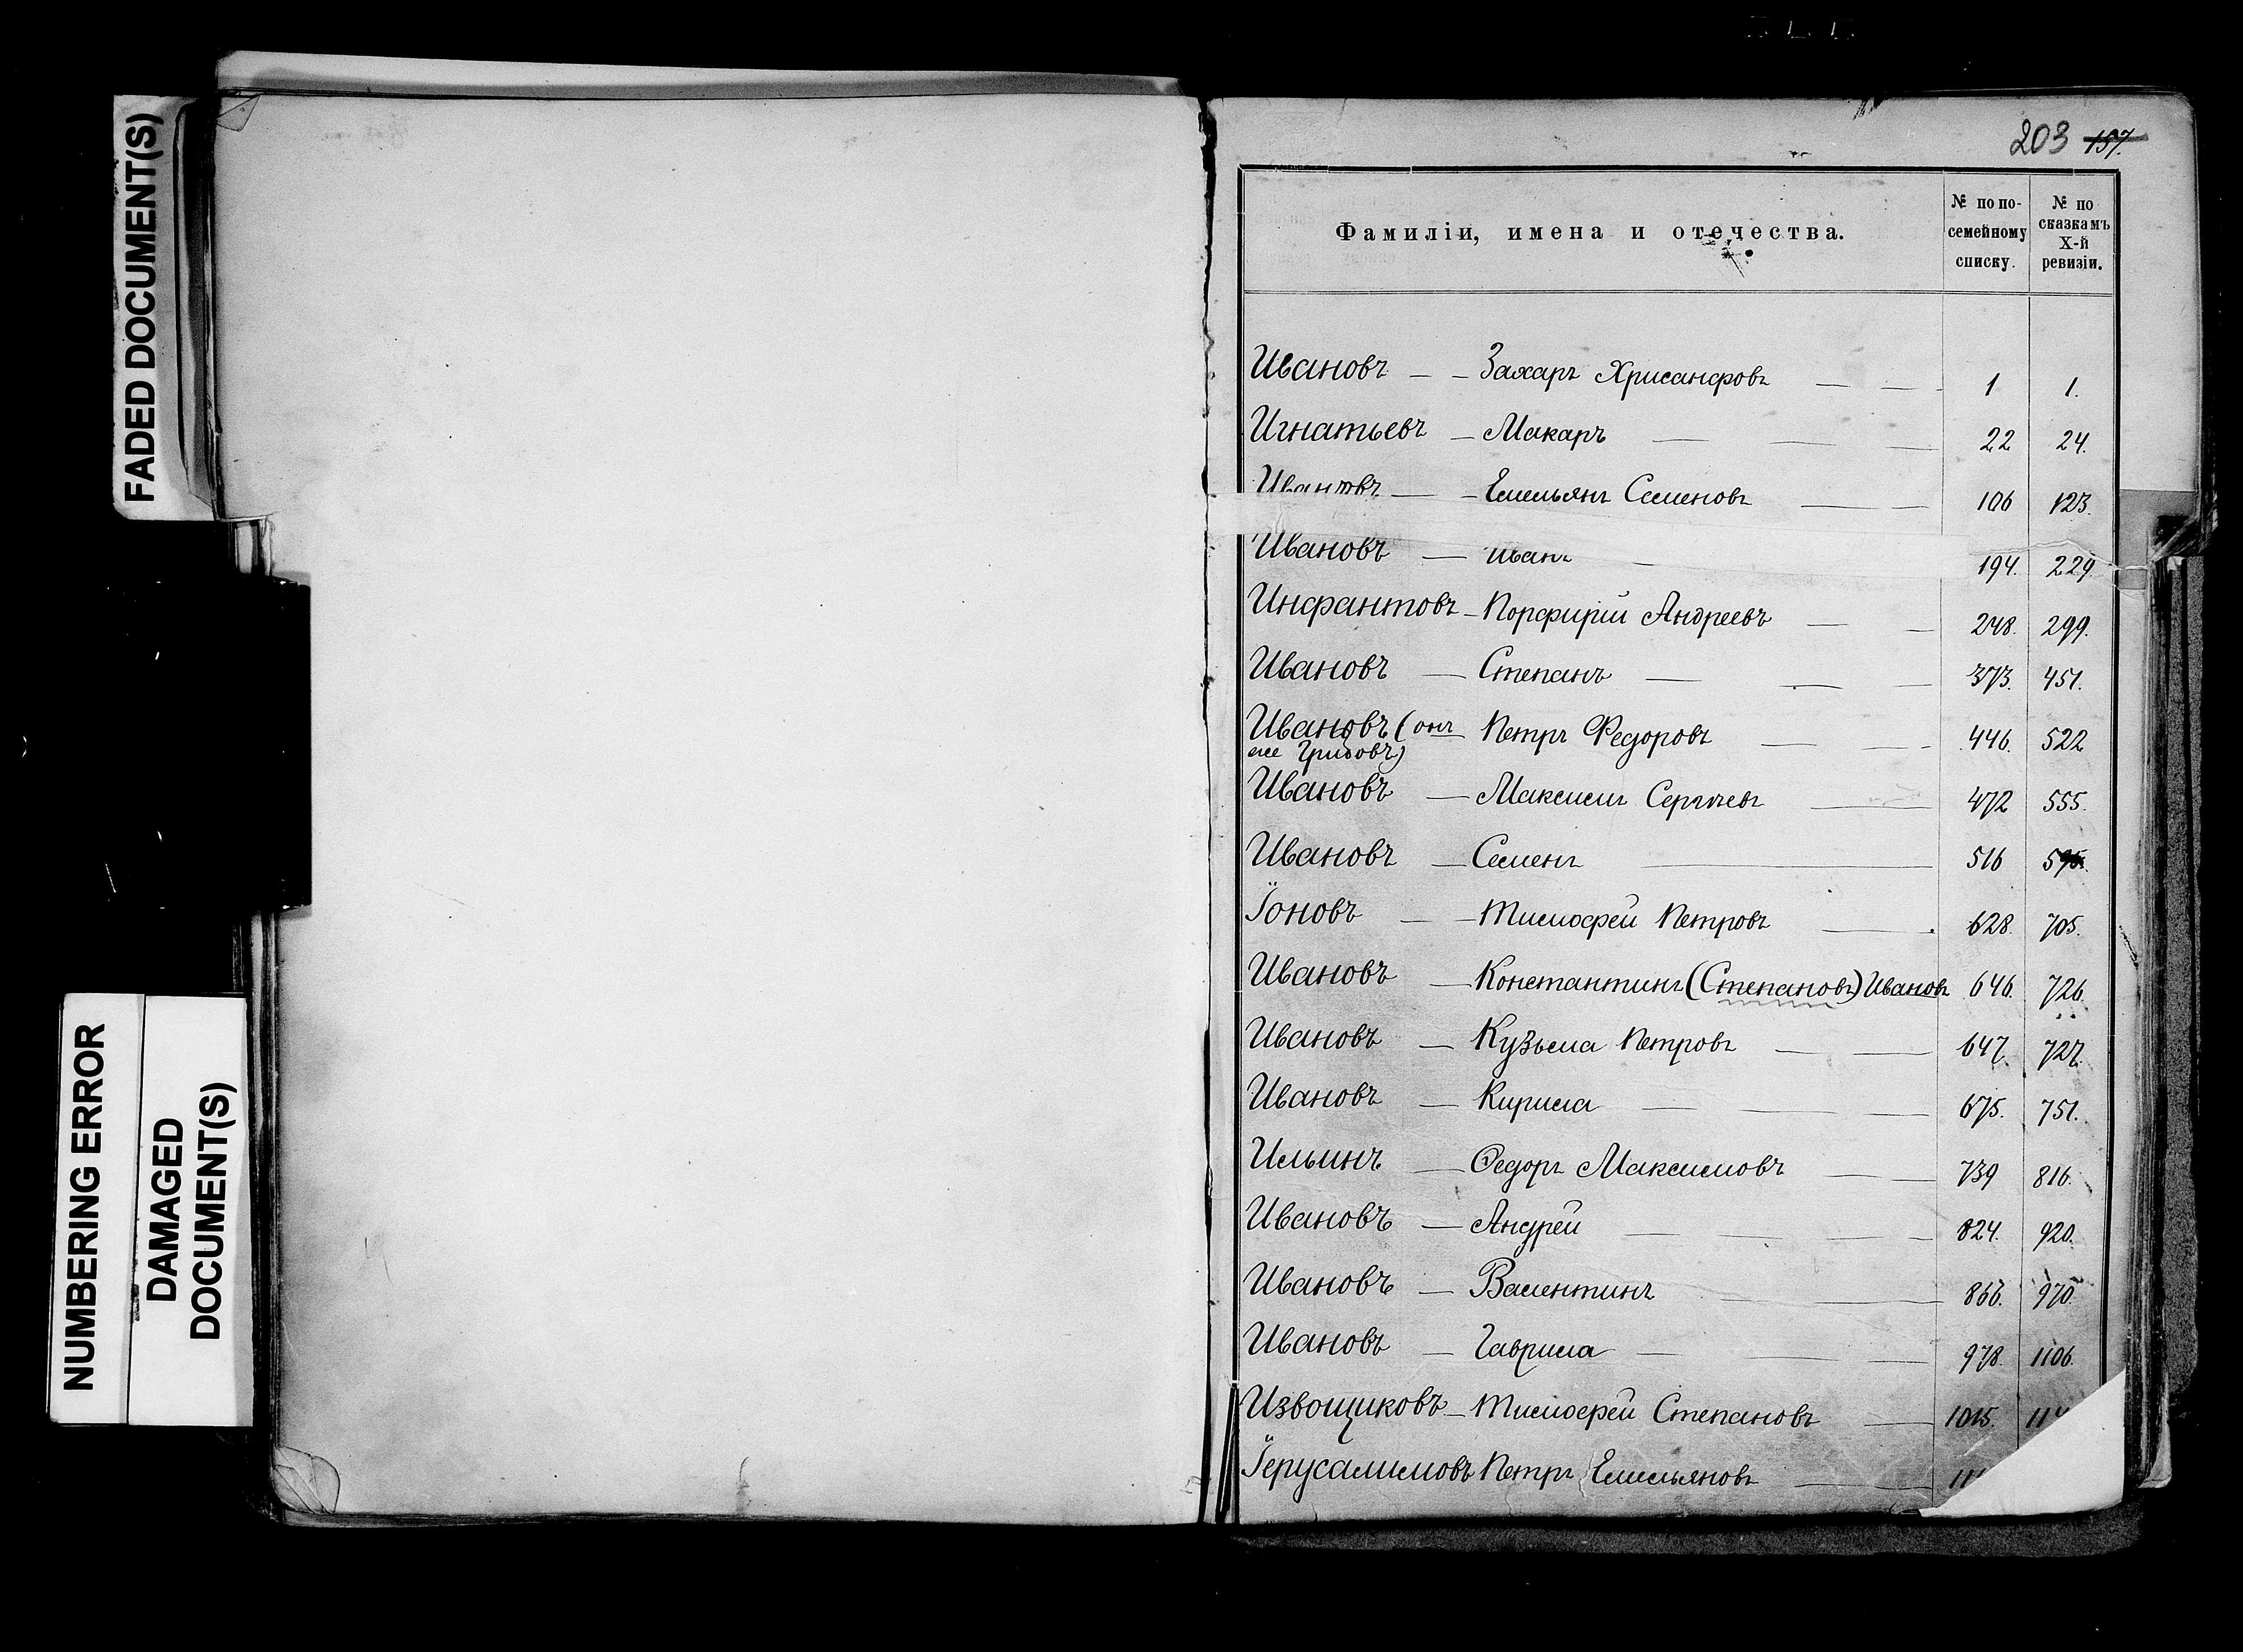 FADED DOCUMENT(S)
NUMBERING ERROR
DAMAGED
DOCUMENT(S)
203 157.
Фамиліи, имена и отечества.
№ по по-
семейному
списку.
№ по
сказкамъ
X-й
ревизіи.
Ивановъ — — Захаръ Хрисанфовъ — — 1 1.
Игнатьевъ — Макаръ — — — 22 24.
Ивановъ — — Емельянъ Семеновъ — — 106 123.
Ивановъ — Иванъ — 194. 229.
Инфантовъ — Порфирій Андреевъ — — 248. 299.
Ивановъ — Степанъ — — — 373. 451.
Ивановъ (онъ Петръ Федоровъ — — 446. 522
же Грибовъ)
Ивановъ — Максимъ Сергѣевъ — 472 555.
Ивановъ — Семенъ — 516
Іоновъ — — Тимофей Петровъ — 628. 705.
Ивановъ — Константинъ (Степановъ) Ивановъ 646. 726.
Ивановъ — Кузьма Петровъ — — 647. 727.
Ивановъ — Кирила — — — 675. 751.
Ильинъ — Федоръ Максимовъ — — 739 816.
Ивановъ — Андрей — — — 824. 920.
Ивановъ — Валентинъ — 866. 970.
Ивановъ — Гаврила — — — 978. 1106.
Извощиковъ — Тимофей Степановъ — 1015. 114
Іерусалимовъ Петръ Емельяновъ — 11